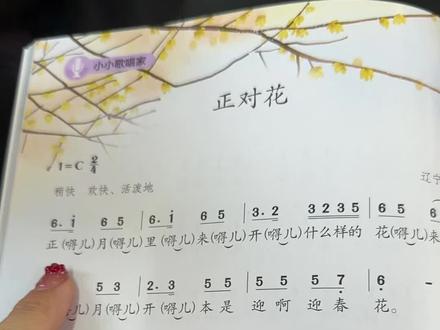 小小歌唱家
正对花
1=C 2/4
稍快 欢快、活泼地
辽宁
6. i 6 5 | 6. i 6 5 | 3. 2 3 2 3 5 | 6 5
正(嘚儿)月(嘚儿)里(嘚儿)来(嘚儿)开(嘚儿)什么样的 花(嘚儿)来
5 3 | 2. 3 5 5 | 5 5 5 7 | 6 -
儿)月(嘚儿)开(嘚儿)本是 迎啊 迎春 花。